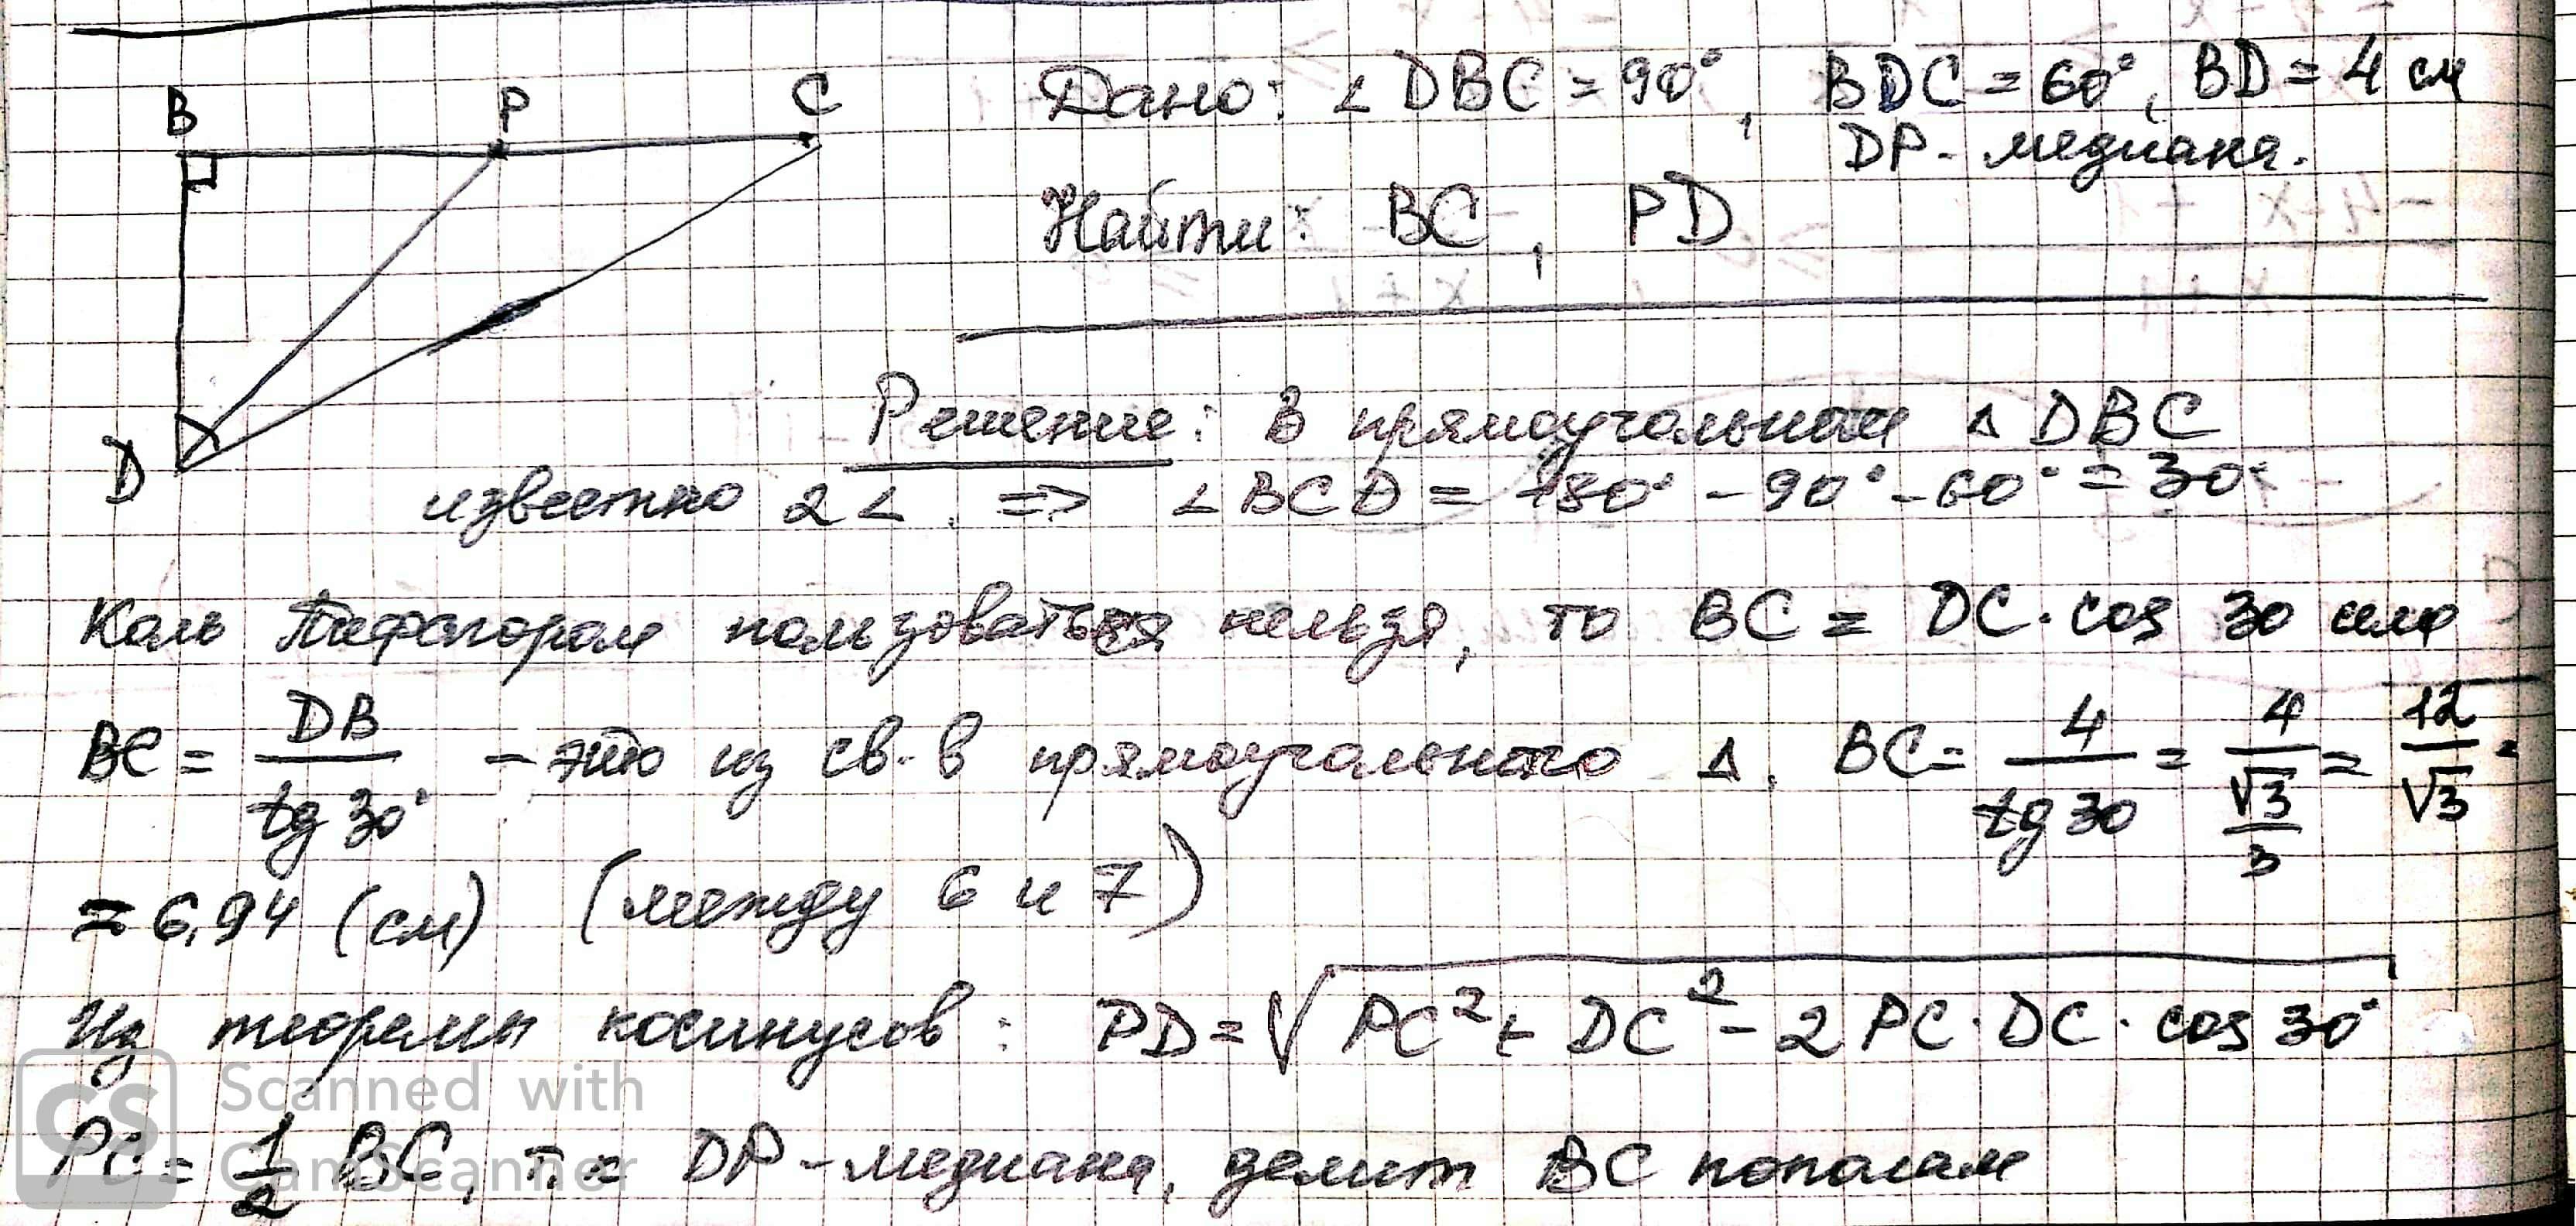 B P C
Дано: ∠ DBC = 90°, BDC = 60°, BD = 4 см
DP - медиана.
Найти: BC, PD
D
Решение: в прямоугольном Δ DBC
известно 2 ∠ . => ∠ BCD = 180° - 90° - 60° = 30°
Коль Пифагором пользоваться нельзя, то BC = DC · cos 30 или
BC = DB / tg 30° - это из св-в прямоугольного Δ. BC = 4 / tg 30 = 4 / (√3 / 3) = 12 / √3 =
= 6,94 (см) (между 6 и 7)
Из теоремы косинусов: PD = √(PC² + DC² - 2 PC · DC · cos 30°)
PC = 1/2 BC, т.к DP - медиана, делит BC пополам
CS Scanned with
CamScanner